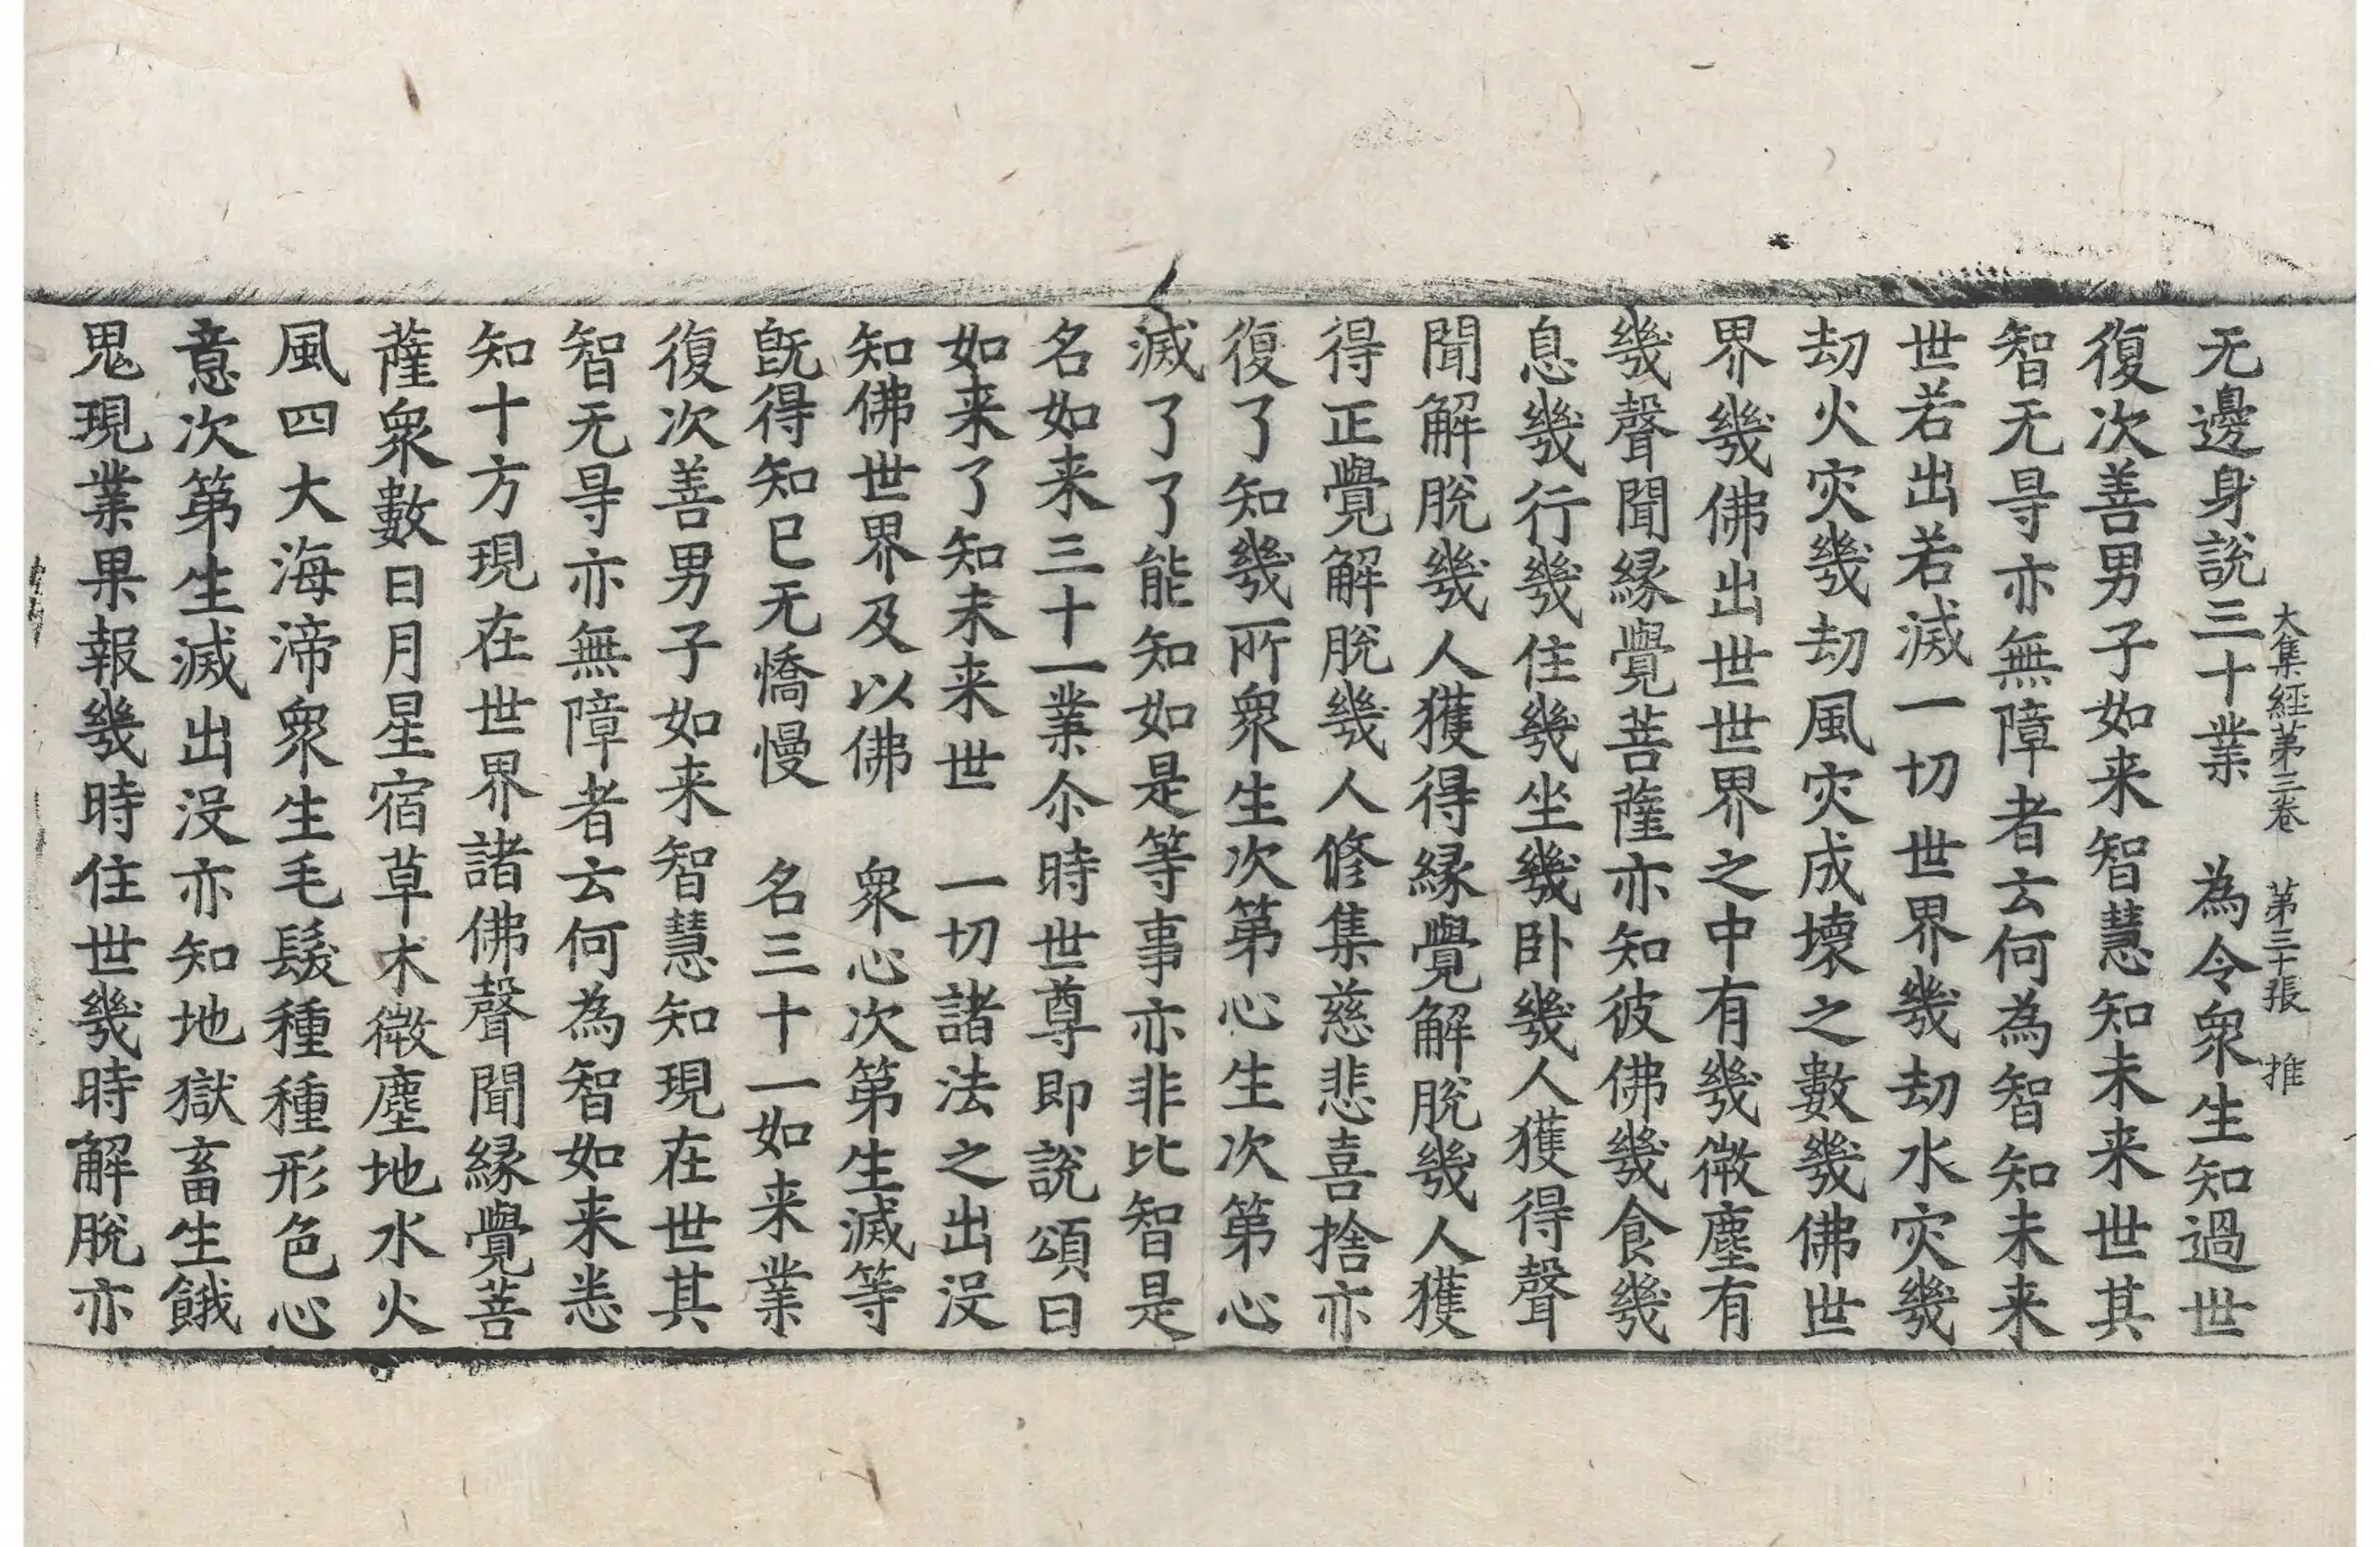 大集經第三卷　第三十張　推
无邊身說三十業　為令衆生知過世
復次善男子如来智慧知未来世其
智无㝵亦無障者云何為智知未来
世若出若滅一切世界幾劫水灾幾
劫火灾幾劫風灾成壞之數幾佛世
界幾佛出世世界之中有幾微塵有
幾聲聞緣覺菩薩亦知彼佛幾食幾
息幾行幾住幾坐幾卧幾人獲得聲
聞解脫幾人獲得緣覺解脫幾人獲
得正覺解脫幾人修集慈悲喜捨亦
復了知幾所衆生次第心生次第心
滅了了能知如是等事亦非比智是
名如来三十一業尒時世尊即說頌曰
如来了知未来世　一切諸法之出没
知佛世界及以佛　衆心次第生滅等
旣得知已无憍慢　名三十一如来業
復次善男子如来智慧知現在世其
智无㝵亦無障者云何為智如来悉
知十方現在世界諸佛聲聞緣覺菩
薩衆數日月星宿草木微塵地水火
風四大海渧衆生毛髮種種形色心
意次第生滅出没亦知地獄畜生餓
鬼現業果報幾時住世幾時解脫亦